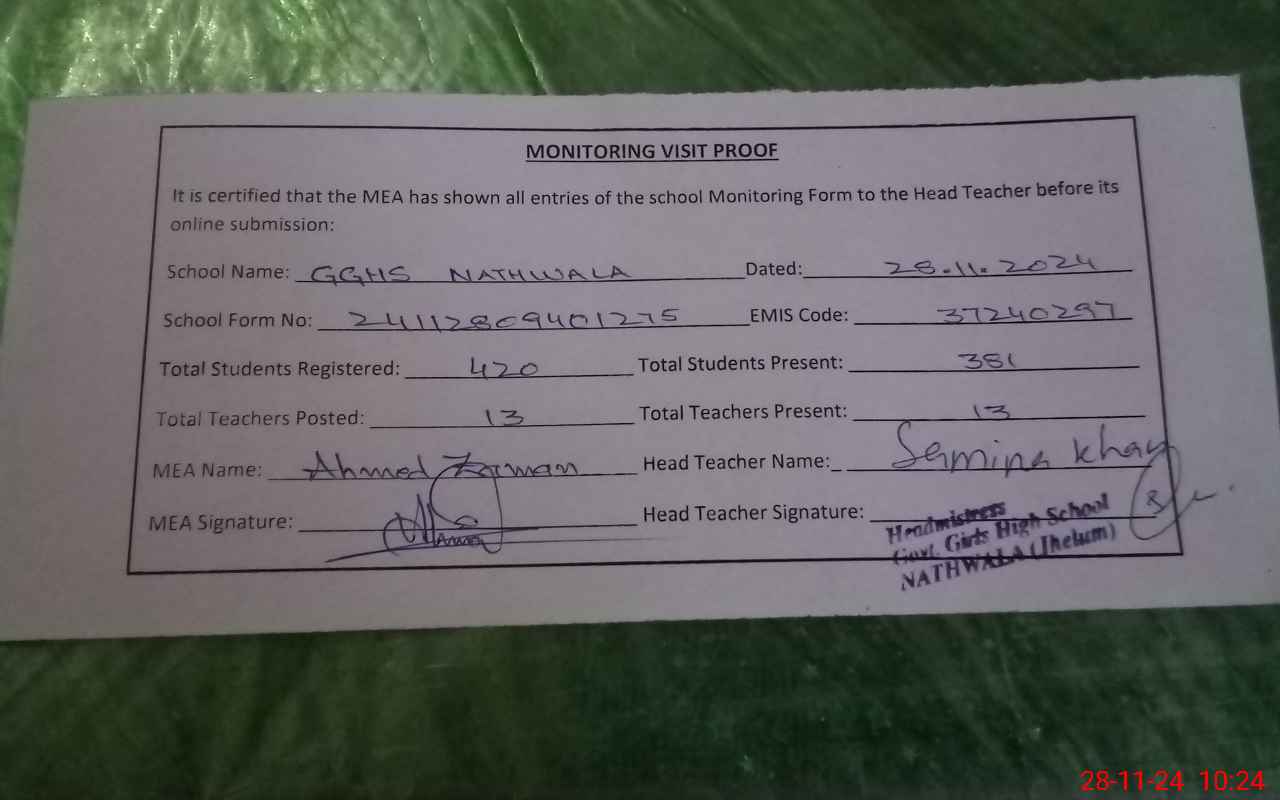 MONITORING VISIT PROOF
It is certified that the MEA has shown all entries of the school Monitoring Form to the Head Teacher before its
online submission:
School Name: GGHS NATHWALA Dated: 28.11.2024
School Form No: 24112809401275 EMIS Code: 37240297
Total Students Registered: 420 Total Students Present: 381
Total Teachers Posted: 13 Total Teachers Present: 13
MEA Name: Ahmed Zaman Head Teacher Name: Semina Khan
MEA Signature: Head Teacher Signature:
Headmistress
Govt. Girls High School
NATHWALA (Jhelum)
28-11-24 10:24